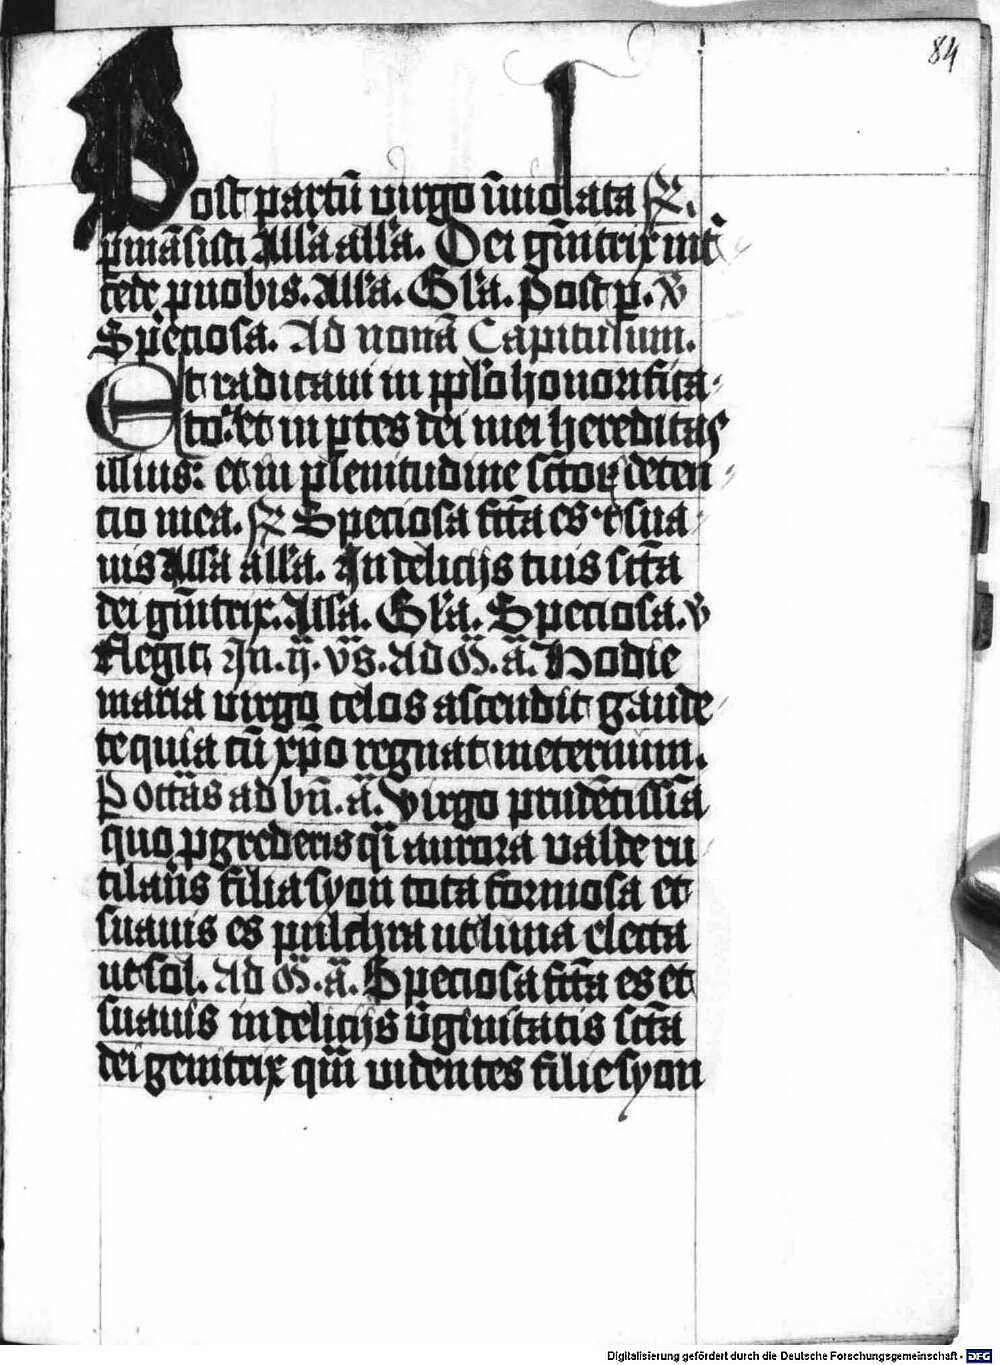 84
Post partū uirgo īuiolata ℟.
pmāsisti All'a all'a. Dei gn̄itrix int̄
cede p nobis. All'a. Gl'a. Post p. ℣
Sp̄eciosa. Ad nonā Capitulum.
Et radicaui in pplo honorifica
to: et in ptes dei mei hereditas
illius: et in plenitudine sctoꝝ deten
cio mea. ℟ Speciosa fct̄a es et sua
uis All'a all'a. In delicijs tuis sct̄a
dei gn̄itrix. All'a. Gl'a. Speciosa. ℣
Elegit In. ij. v̄s. Ad M̄. ā. Hodie
maria uirgo celos ascendit gaude
te quia cū xp̄o regnat ineternūm.
P octās ad bn̄. ā. Virgo prudētissīa
quo pgrederis qi aurora valde ru
tilans filia syon tota formosa et
suauis es pulchra ut luna electa
ut sol. Ad M̄. ā. Speciosa fct̄a es et
suauis in delicijs ūginitatis sct̄a
dei genitrix qm̄ uidentes filie syon
Digitalisierung gefördert durch die Deutsche Forschungsgemeinschaft - DFG